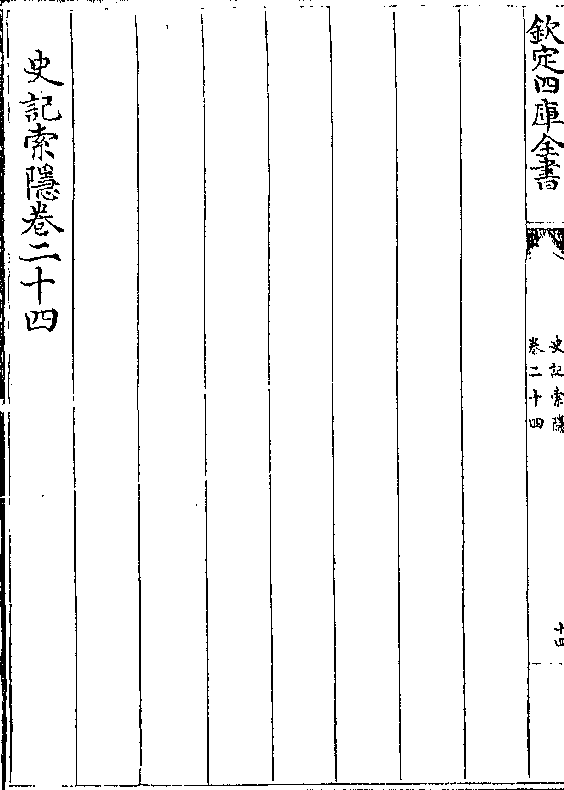 欽定四庫全書
史記索隱
卷二十四
十四
史記索隱卷二十四